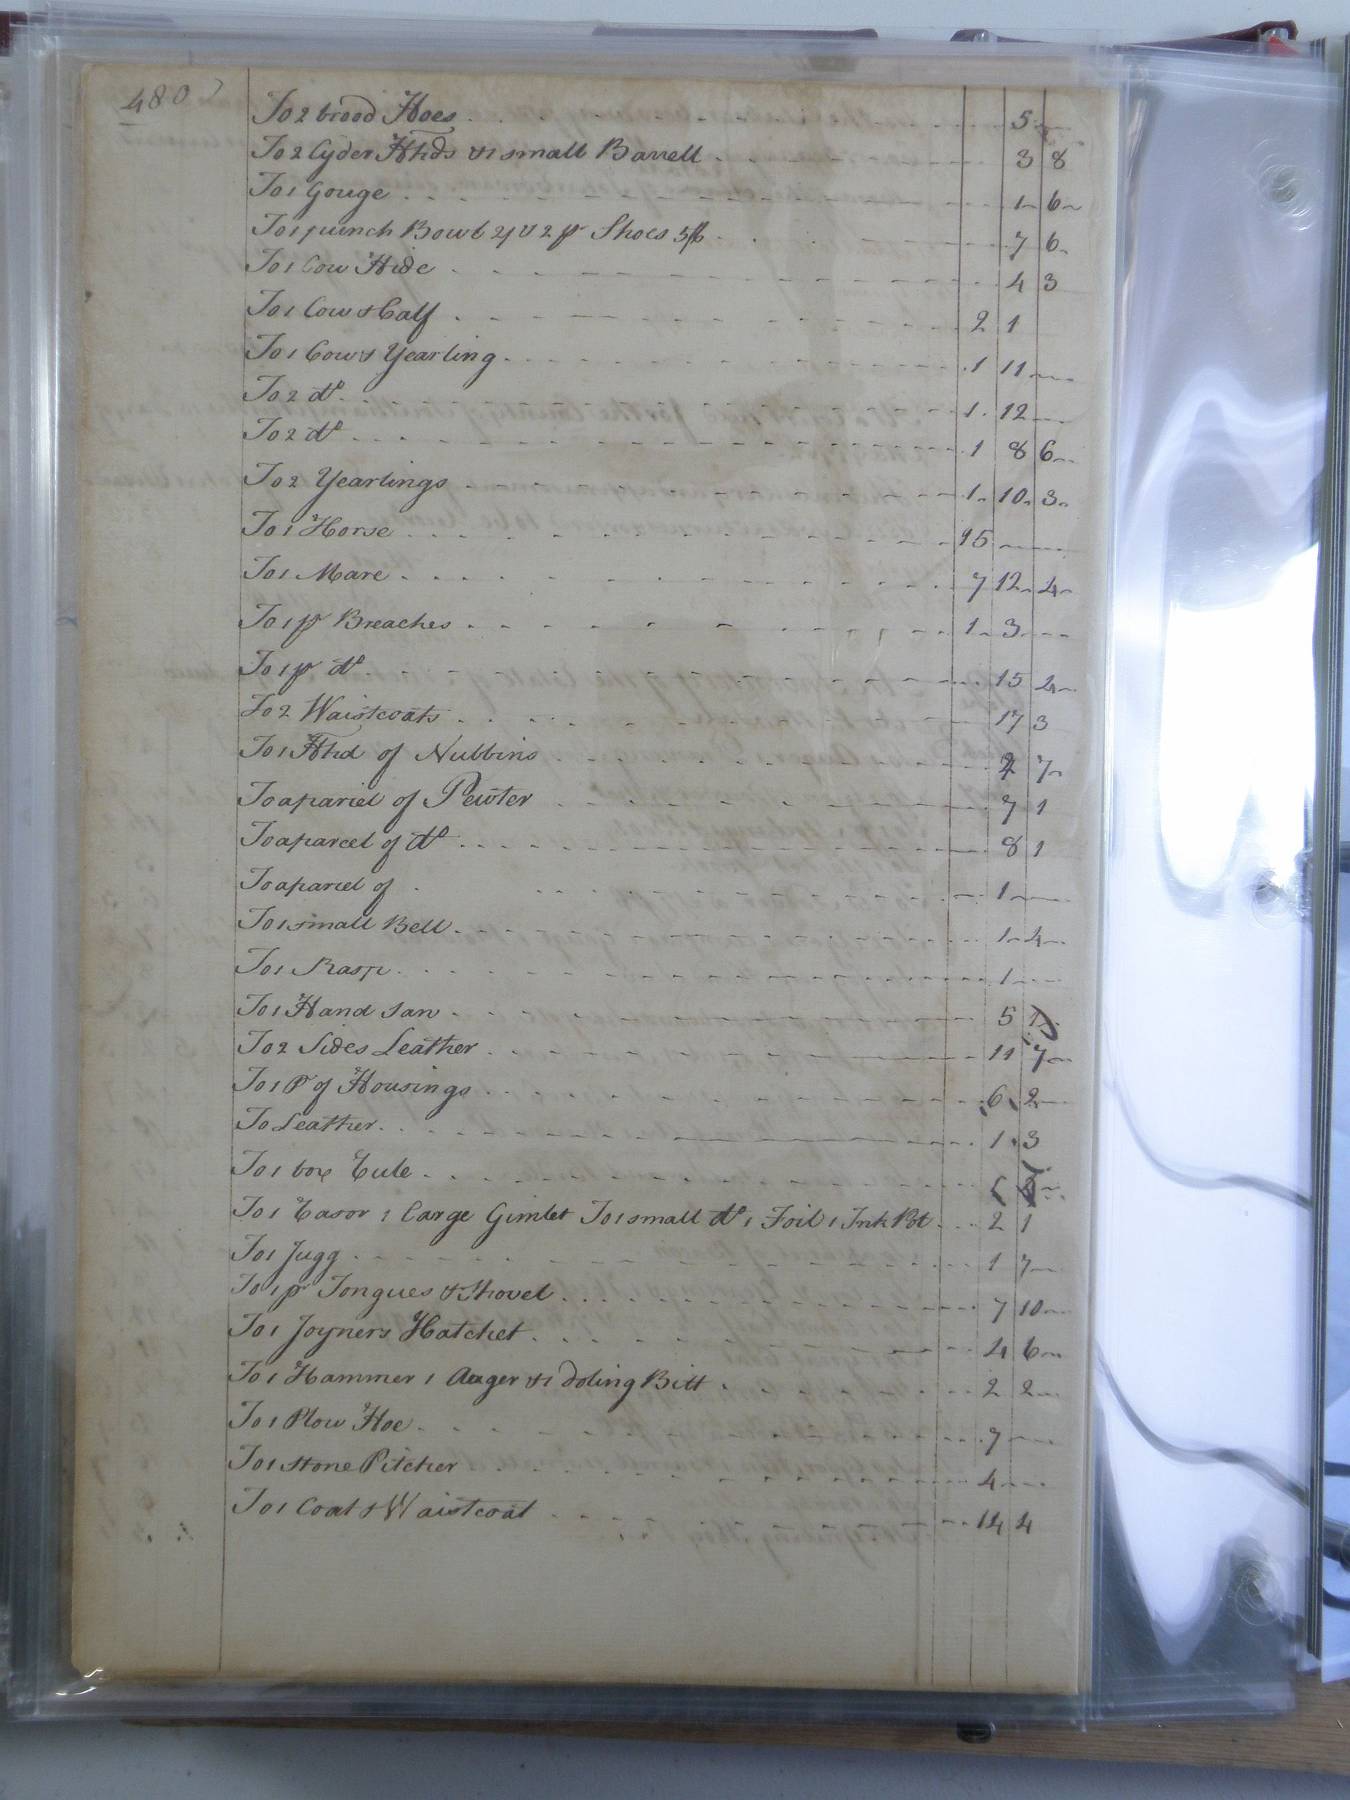 480
To 2 broad Hoes 5
To 2 Cyder Hhds & 1 small Barrell 3 8
To 1 Gouge 1 6
To 1 punch Bowl 2/ & 2 pr Shoes 5/6 7 6
To 1 Cow Hide 4 3
To 1 Cow & Calf 2 1
To 1 Cow & Yearling 1 11
To 2 do 1 12
To 2 do 1 8 6
To 2 Yearlings 1 10 3
To 1 Horse 15
To 1 Mare 7 12 4
To 1 pr Breaches 1 3
To 1 pr do 15 2
To 2 Waistcoats 17 3
To 1 Hhd of Nubbins 2 7
To a parcel of Pewter 7 1
To a parcel of do 8 1
To a parcel of 1
To 1 small Bell 1 4
To 1 Rasp 1
To 1 Hand Saw 5 1
To 2 Sides Leather 11 7
To 1 Pr of Housings 6 2
To Leather 1 3
To 1 box
To 1 1 large Gimlet To 1 small do 1 Foil 1 Ink Pot 2 1
To 1 Jugg 1 7
To 1 pr Tongues & Shovel 7 10
To 1 Joyners Hatchet 4 6
To 1 Hammer 1 Auger & 1 doling Bitt 2 2
To 1 Plow Hoe 7
To 1 stone Pitcher 4
To 1 Coat & Waistcoat 14 4